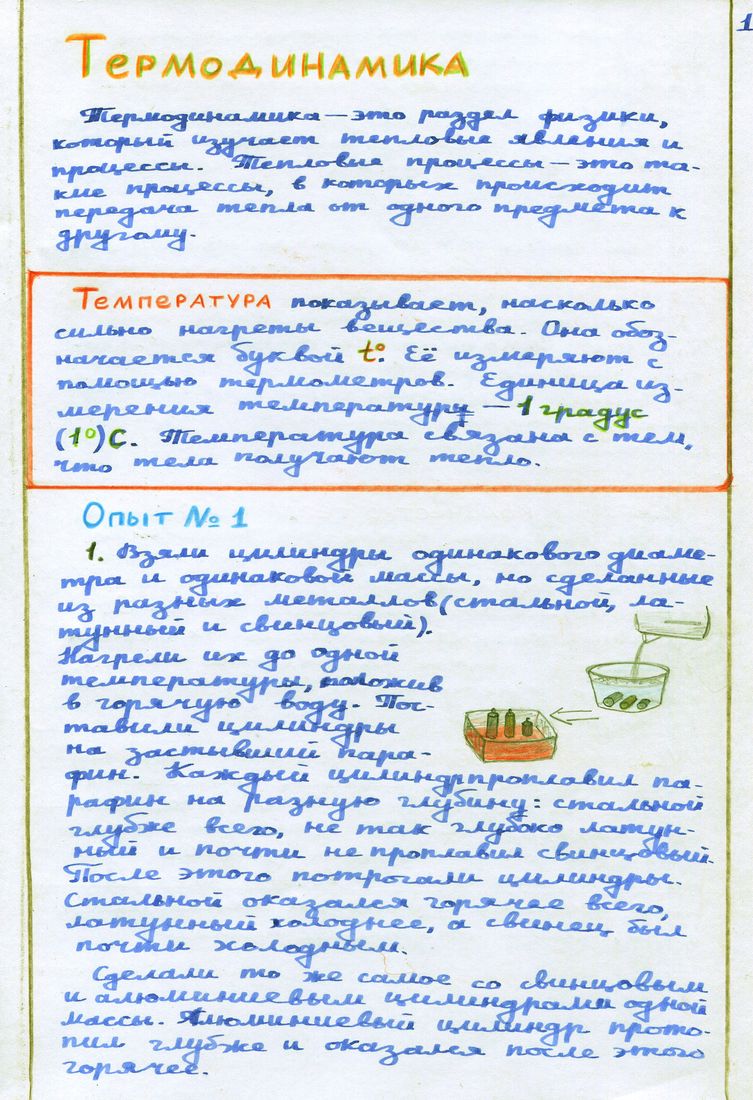 1
Термодинамика
Термодинамика — это раздел физики,
который изучает тепловые явления и
процессы. Тепловые процессы — это та-
кие процессы, в которых происходит
передача тепла от одного предмета к
другому.
Температура показывает, насколько
сильно нагреты вещества. Она обоз-
начается буквой t°. Её измеряют с
помощью термометров. Единица из-
мерения температуры — 1 градус
(1°) С. Температура связана с тем,
что тела получают тепло.
Опыт № 1
1. Взяли цилиндры одинакового диаме-
тра и одинаковой массы, но сделанные
из разных металлов (стальной, ла-
тунный и свинцовый).
Нагрели их до одной
температуры, положив
в горячую воду. Пос-
тавили цилиндры
на застывший пара-
фин. Каждый цилиндр проплавил па-
рафин на разную глубину: стальной
глубже всего, не так глубоко латун-
ный и почти не проплавил свинцовый.
После этого потрогали цилиндры.
Стальной оказался горячее всего,
латунный холоднее, а свинец был
почти холодным.
Сделали то же самое со свинцовым
и алюминиевым цилиндрами одной
массы. Алюминиевый цилиндр прото-
пил глубже и оказался после этого
горячее.